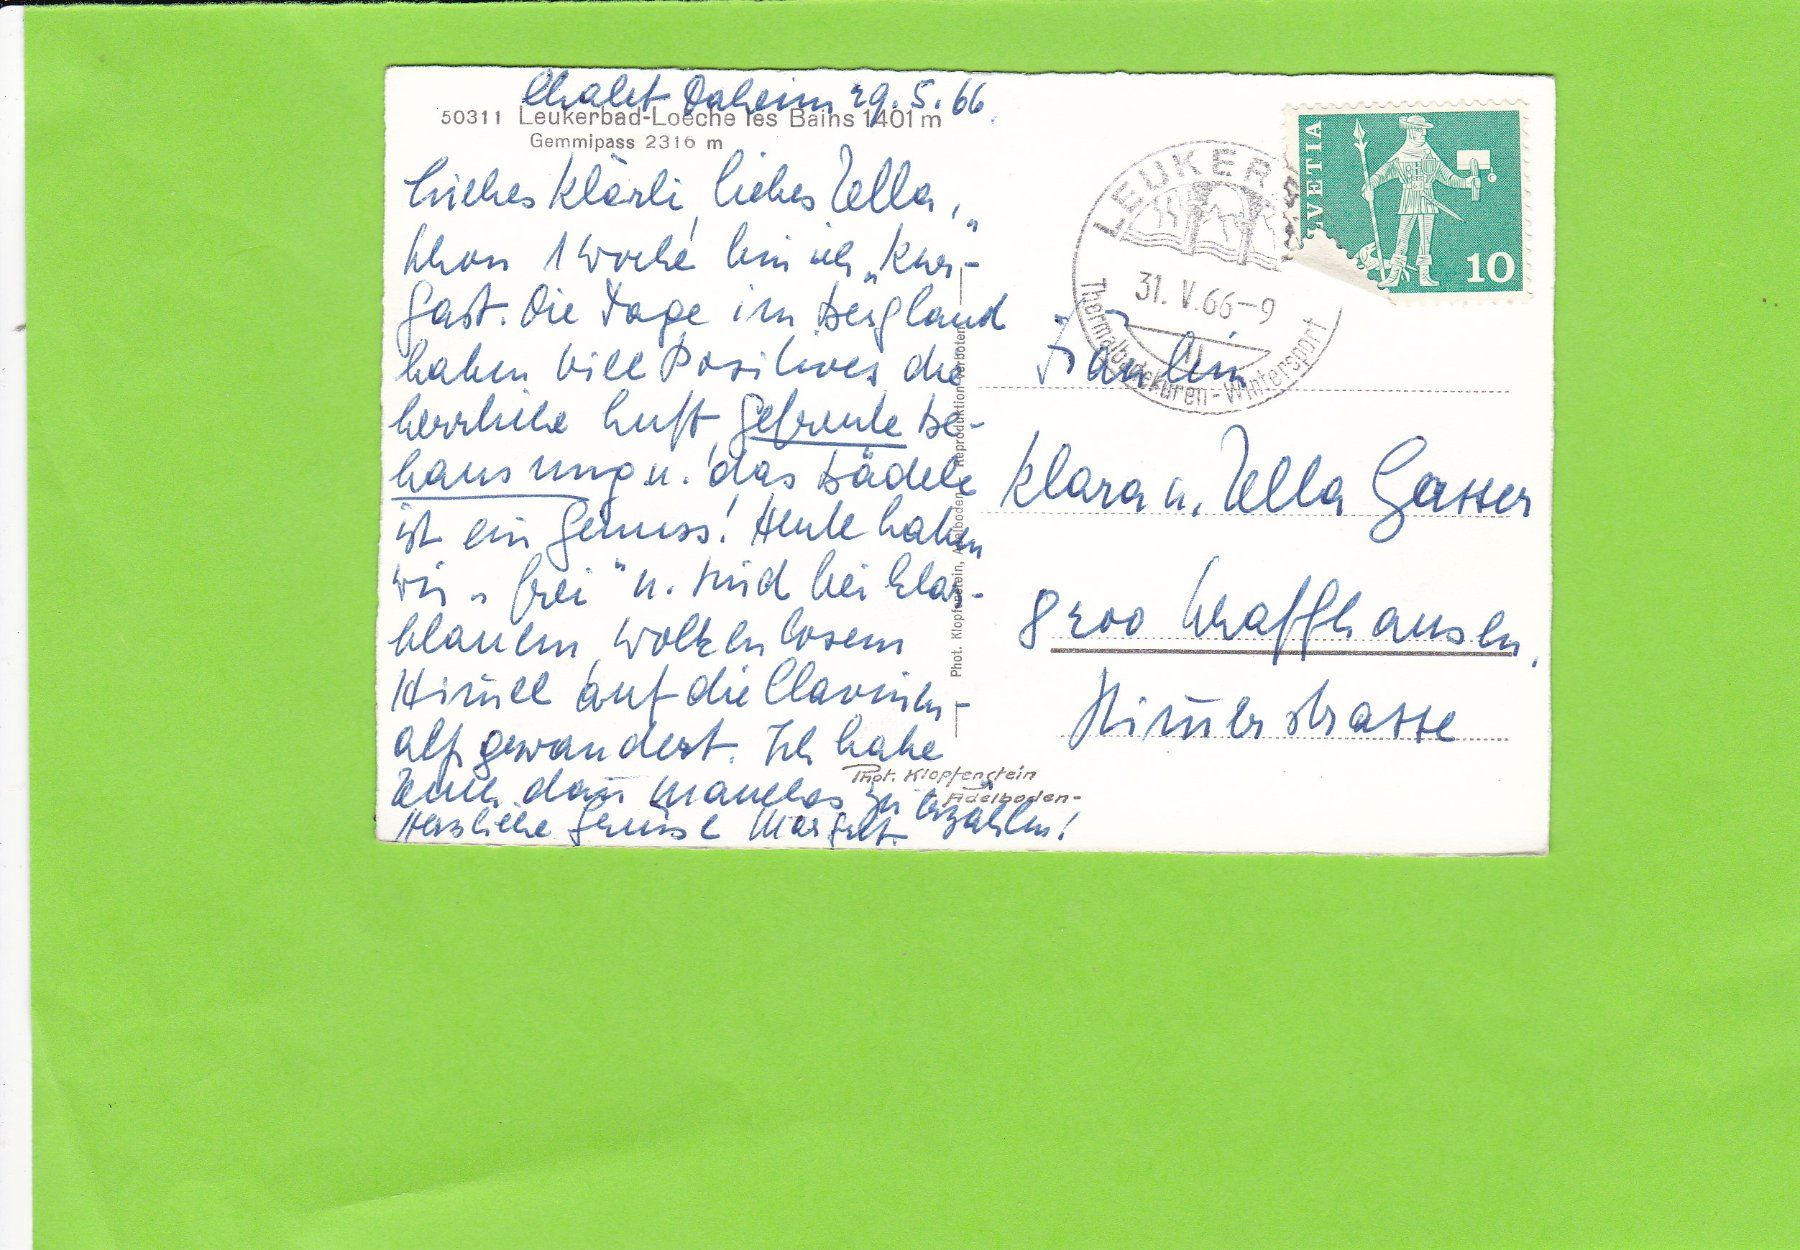 Chalet Daheim 29.5.66.
50311 Leukerbad-Loèche les Bains 1401 m
Gemmipass 2316 m
Liebes Klärli, liebes Zella,
schon 1 Woche bin ich „Kur-
gast." Die Tage im Bergland
haben viel Positives, die
herrliche Luft, gefreute Be-
hausung u. das Bädele
ist ein Genuss! Heute haben
wir „frei" u. sind bei klar-
blauem, wolkenlosem
Himmel auf die
alp gewandert. Ich habe
Euch dann manches zu erzählen!
Herzliche Grüsse Margrit.
Phot. Klopfenstein, Adelboden Reproduktion verboten
Phot. Klopfenstein
Adelboden-
LEUKER
31.V.66-9
Thermalbadekuren-Wintersport
HELVETIA
10
Fräulein
Klara u. Zella Gasser
8200 Schaffhausen,